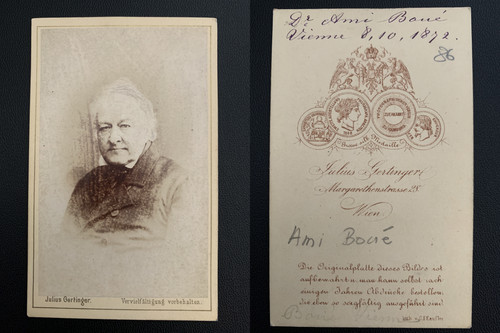 Julius Gertinger.
Vervielfältigung vorbehalten.
Dr Ami Boué
Vienne 8, 10, 1872.
86
Julius Gertinger,
Margarethenstrasse 28
Wien.
Ami Boué
Die Originalplatte dieses Bildes ist
aufbewahrt u. man kann selbst nach
einigen Jahren Abdrücke bestellen,
die eben so sorgfältig ausgeführt sind.